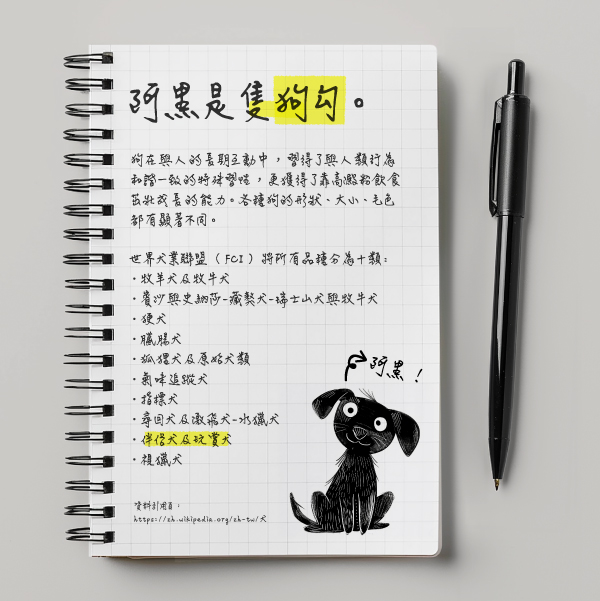 阿黑是隻狗勾。
狗在與人的長期互動中，習得了與人類行為
和諧一致的特殊習性，更獲得了靠高澱粉飲食
茁壯成長的能力。各種狗的形狀、大小、毛色
都有顯著不同。
世界犬業聯盟（FCI）將所有品種分為十類：
・牧羊犬及牧牛犬
・賓沙與史納莎-藏獒犬-瑞士山犬與牧牛犬
・㹴犬
・臘腸犬
・狐狸犬及原始犬類
・氣味追蹤犬
・指標犬
・尋回犬及激飛犬-水獵犬
・伴侶犬及玩賞犬
・視獵犬
阿黑！
資料引用自：
https://zh.wikipedia.org/zh-tw/犬